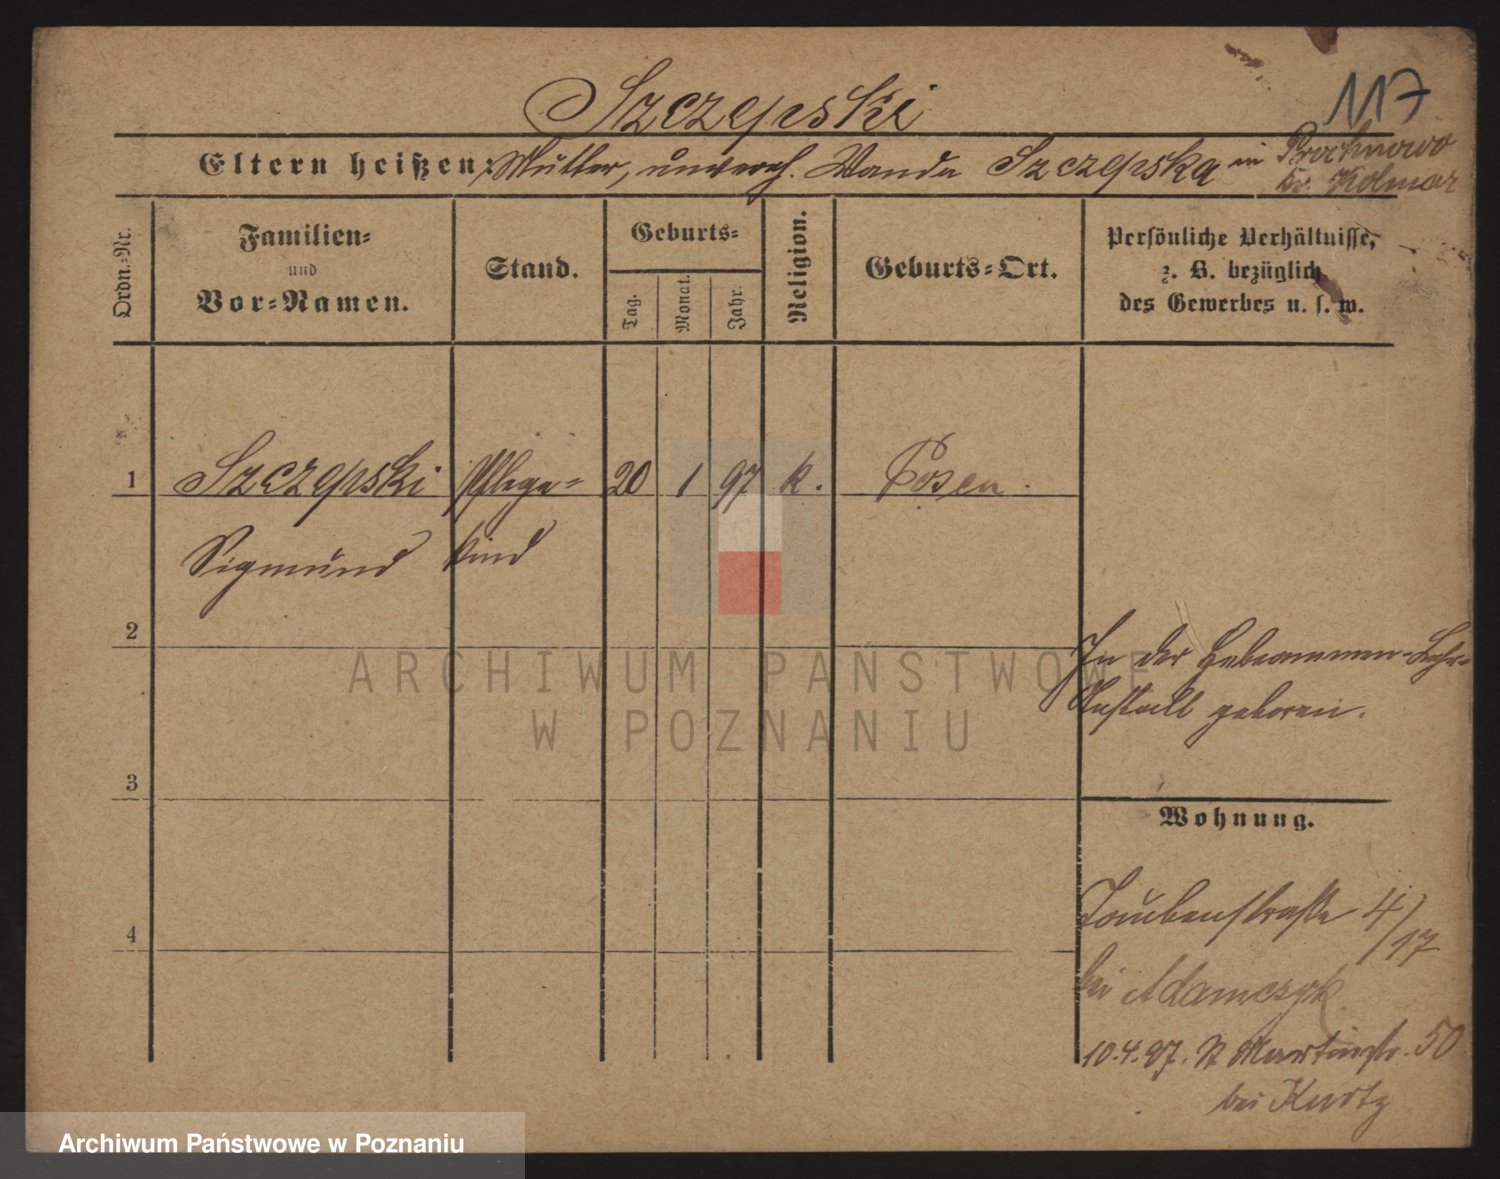 117
Szczepski
Eltern heißen: Mutter, unvereh. Wanda Szczepska in Prochnowo
Kr. Kolmar
Ordn.-Nr.
Familien-
und
Vor-Namen.
Stand.
Geburts-
Tag.
Monat.
Jahr.
Religion.
Geburts-Ort.
Persönliche Verhältnisse,
z. B. bezüglich
des Gewerbes u. s. w.
1 Szczepski Pflege- 20 1 97 k. Posen.
Sigmund kind
2
In der Hebeammen-Lehr-
Anstalt geboren.
ARCHIWUM PAŃSTWOWE
W POZNANIU
3
Wohnung.
4
Taubenstraße 4/17
bei Adamczyk
10.4.97. St Martinstr. 50
bei Kurtz
Archiwum Państwowe w Poznaniu